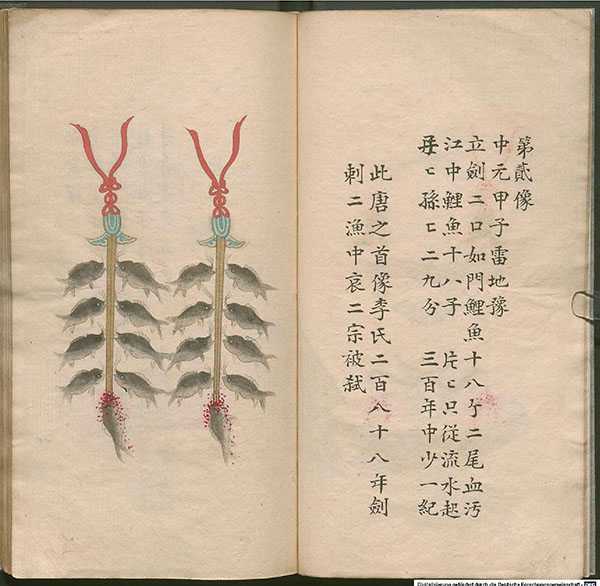 第貳像
中元甲子雷地豫
立劍二口如門鯉魚十八个二尾血污
江中鯉魚十八子 片〻只從流水起
〻孫〻二九分 三百年中少一紀
此唐之首像李氏二百八十八年劍
刺二漁中哀二宗被弒
Digitalisierung gefördert durch die Deutsche Forschungsgemeinschaft - DFG